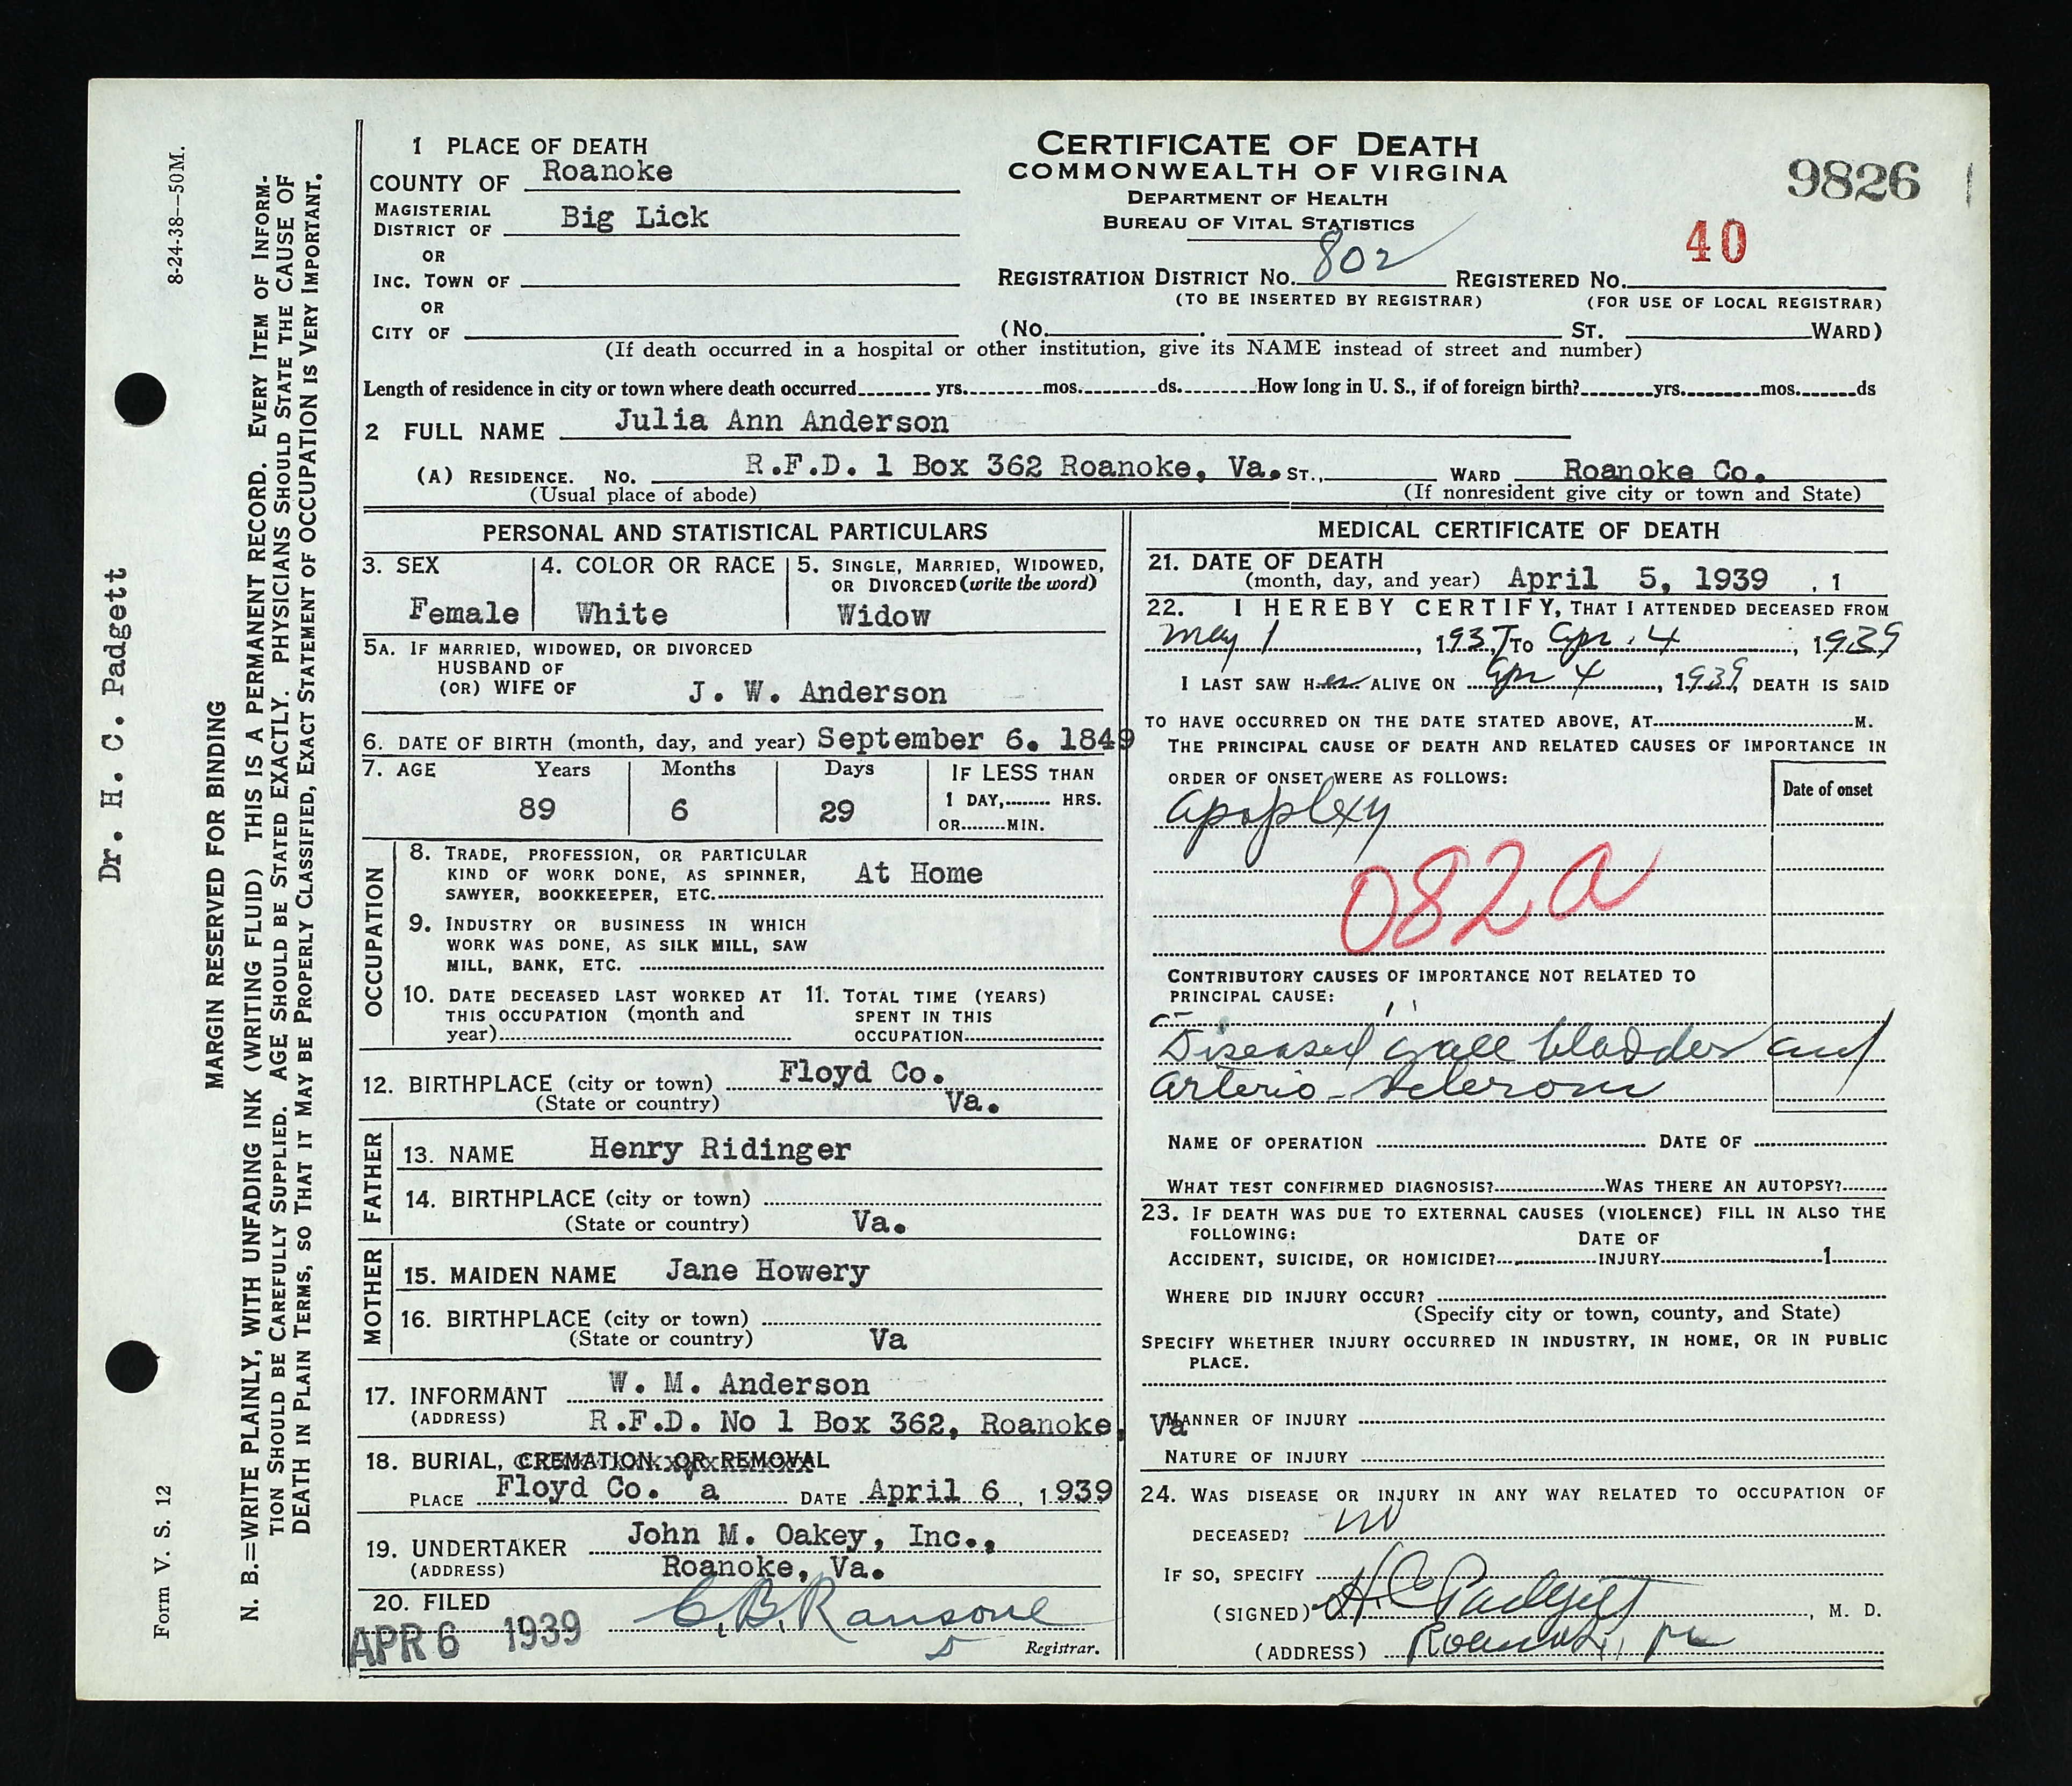 8-24-38--50M.
Dr. H. C. Padgett
Form V. S. 12
MARGIN RESERVED FOR BINDING
N. B.=WRITE PLAINLY, WITH UNFADING INK (WRITING FLUID) THIS IS A PERMANENT RECORD. EVERY ITEM OF INFORM-
TION SHOULD BE CAREFULLY SUPPLIED. AGE SHOULD BE STATED EXACTLY. PHYSICIANS SHOULD STATE THE CAUSE OF
DEATH IN PLAIN TERMS, SO THAT IT MAY BE PROPERLY CLASSIFIED, EXACT STATEMENT OF OCCUPATION IS VERY IMPORTANT.
CERTIFICATE OF DEATH
COMMONWEALTH OF VIRGINA
DEPARTMENT OF HEALTH
BUREAU OF VITAL STATISTICS
9826
40
1 PLACE OF DEATH
COUNTY OF Roanoke
MAGISTERIAL
DISTRICT OF Big Lick
OR
INC. TOWN OF
REGISTRATION DISTRICT NO. 802 REGISTERED NO.
(TO BE INSERTED BY REGISTRAR) (FOR USE OF LOCAL REGISTRAR)
OR
CITY OF (NO. ST. WARD)
(If death occurred in a hospital or other institution, give its NAME instead of street and number)
Length of residence in city or town where death occurred yrs. mos. ds. How long in U. S., if of foreign birth? yrs. mos. ds
2 FULL NAME Julia Ann Anderson
(A) RESIDENCE. No. R.F.D. 1 Box 362 Roanoke, Va. ST., WARD Roanoke Co.
(Usual place of abode) (If nonresident give city or town and State)
PERSONAL AND STATISTICAL PARTICULARS
3. SEX 4. COLOR OR RACE 5. SINGLE, MARRIED, WIDOWED,
OR DIVORCED (write the word)
Female White Widow
5A. IF MARRIED, WIDOWED, OR DIVORCED
HUSBAND OF
(OR) WIFE OF J. W. Anderson
6. DATE OF BIRTH (month, day, and year) September 6. 1849
7. AGE Years Months Days IF LESS THAN
1 DAY, HRS.
89 6 29
OR MIN.
OCCUPATION
8. TRADE, PROFESSION, OR PARTICULAR
KIND OF WORK DONE, AS SPINNER, At Home
SAWYER, BOOKKEEPER, ETC.
9. INDUSTRY OR BUSINESS IN WHICH
WORK WAS DONE, AS SILK MILL, SAW
MILL, BANK, ETC.
10. DATE DECEASED LAST WORKED AT 11. TOTAL TIME (YEARS)
THIS OCCUPATION (month and SPENT IN THIS
year) OCCUPATION
12. BIRTHPLACE (city or town) Floyd Co.
(State or country) Va.
FATHER
13. NAME Henry Ridinger
14. BIRTHPLACE (city or town)
(State or country) Va.
MOTHER
15. MAIDEN NAME Jane Howery
16. BIRTHPLACE (city or town)
(State or country) Va
17. INFORMANT W. M. Anderson
(ADDRESS) R.F.D. No 1 Box 362, Roanoke, Va
18. BURIAL, CREMATION OR REMOVAL
PLACE Floyd Co. Va DATE April 6, 1939
19. UNDERTAKER John M. Oakey, Inc.,
(ADDRESS) Roanoke, Va.
20. FILED
APR 6 1939 C. B. Ransone
Registrar.
MEDICAL CERTIFICATE OF DEATH
21. DATE OF DEATH
(month, day, and year) April 5, 1939 , 1
22. I HEREBY CERTIFY, THAT I ATTENDED DECEASED FROM
May 1, 1937, TO Apr. 4, 1939
I LAST SAW Her ALIVE ON Apr 4, 1939, DEATH IS SAID
TO HAVE OCCURRED ON THE DATE STATED ABOVE, AT M.
THE PRINCIPAL CAUSE OF DEATH AND RELATED CAUSES OF IMPORTANCE IN
ORDER OF ONSET WERE AS FOLLOWS: Date of onset
Apoplexy
082a
CONTRIBUTORY CAUSES OF IMPORTANCE NOT RELATED TO
PRINCIPAL CAUSE:
Diseased gall bladder and
arterio-sclerosis
NAME OF OPERATION DATE OF
WHAT TEST CONFIRMED DIAGNOSIS? WAS THERE AN AUTOPSY?
23. IF DEATH WAS DUE TO EXTERNAL CAUSES (VIOLENCE) FILL IN ALSO THE
FOLLOWING: DATE OF
ACCIDENT, SUICIDE, OR HOMICIDE? INJURY 1
WHERE DID INJURY OCCUR?
(Specify city or town, county, and State)
SPECIFY WHETHER INJURY OCCURRED IN INDUSTRY, IN HOME, OR IN PUBLIC
PLACE.
MANNER OF INJURY
NATURE OF INJURY
24. WAS DISEASE OR INJURY IN ANY WAY RELATED TO OCCUPATION OF
DECEASED? no
IF SO, SPECIFY
(SIGNED) H C Padgett, M. D.
(ADDRESS) Roanoke, Va